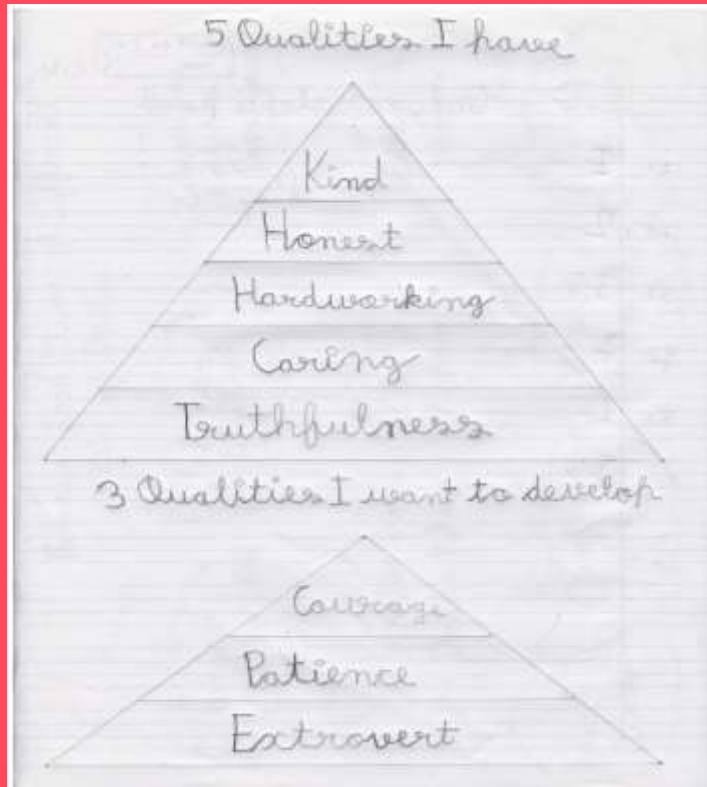 5 Qualities I have
Kind
Honest
Hardworking
Caring
Truthfulness
3 Qualities I want to develop
Courage
Patience
Extrovert